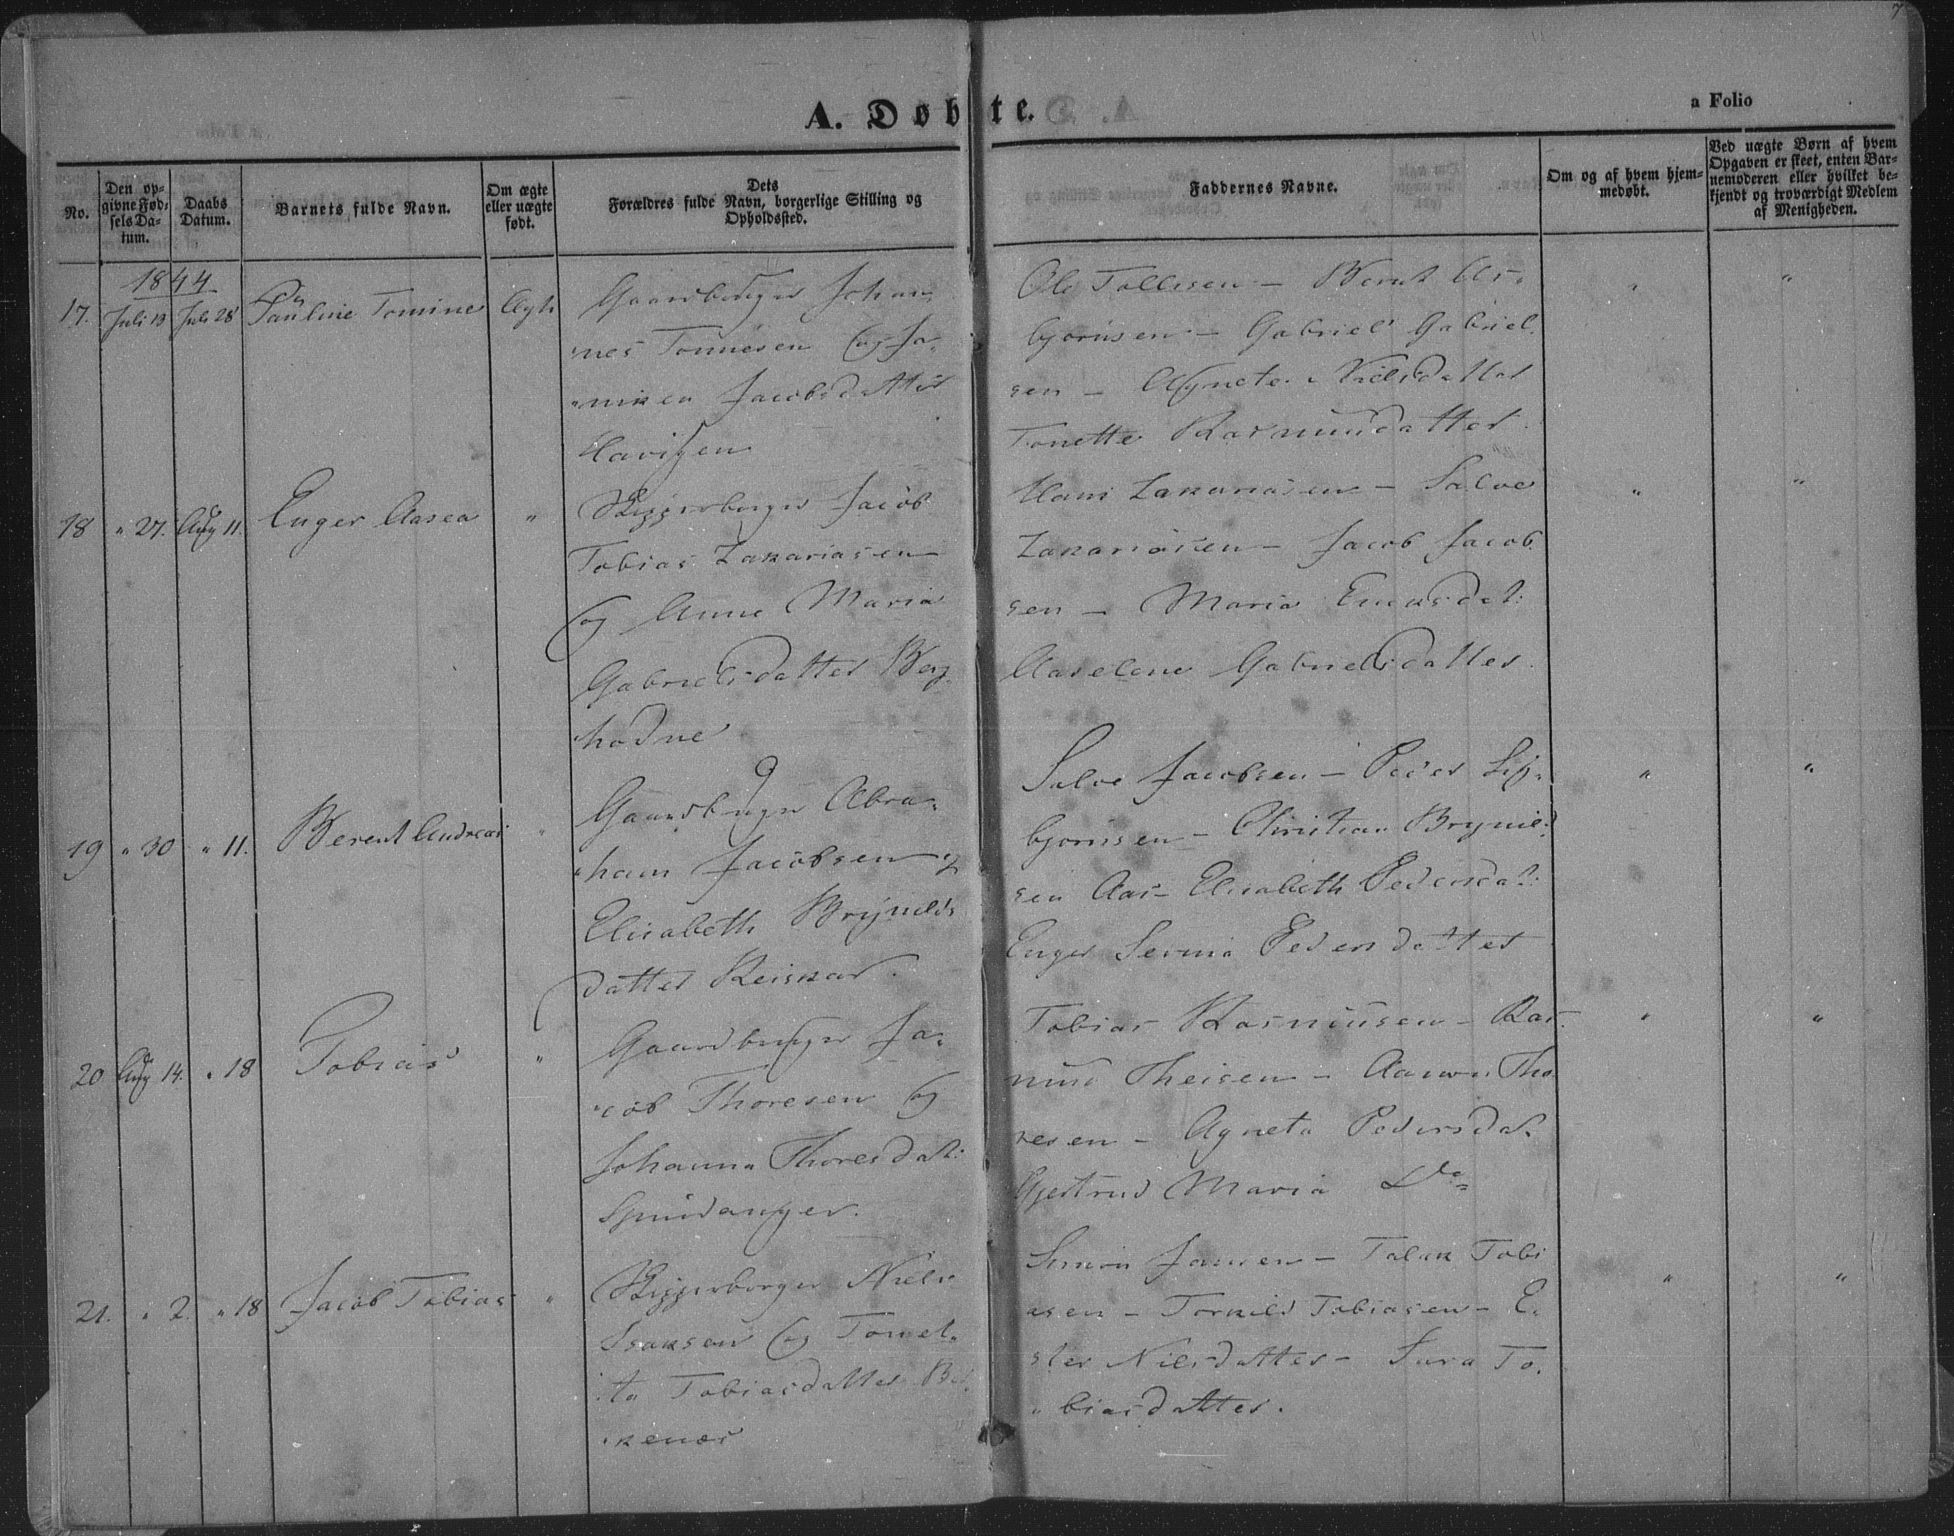 7
A. Døbte.
a Folio
No.
Den opgivne Fødselsdatum.
Daabs Datum.
Barnets fulde Navn.
Om ægte eller uægte født.
Dets Forældres fulde Navn, borgerlige Stilling og Opholdssted.
Faddernes Navne.
Om og af hvem hjemmedøbt.
Ved uægte Børn af hvem Opgaven er skeet, enten Barnemoderen eller hvilket bekjendt og troværdigt Medlem af Menigheden.
1844
17. Juli 19 Juli 28 Pauline Tomine Ægte
Gaardbruger Johan-
nes Tønnesen og Ja-
miken Jacobsdatter
Ole Tollisen - Bernt As-
bjørnsen - Gabriel Gabriel-
sen - Agnete Nielsdatter
Tonette Rasmusdatter.
18 " 27. Aug 11. Enger Aasea "
Skipperborger Jacob
Tobias Zakariasen
og Anne Maria
Gabrielsdatter Berg-
hodne
Hans Zakariasen - Salve
Zakariasen - Jacob Jacob-
sen - Maria Enoksdat:
Aaselene Gabrielsdatter.
19 " 30 " 11. Berent Andreas "
Gaardbruger Abra-
ham Jacobsen og
Elisabeth Brynilds
datter Reiskar.
Salve Jacobsen - Peder Sig-
bjørnsen - Christian Brynild-
sen Aas - Elisabeth Pedersdat:
Enger Serina Pedersdatter
20 Aug 14. " 18 Tobias "
Gaardbruger Ja-
cob Thoresen og
Johanna Thoresdat:
Spindanger.
Tobias Rasmusen - Ras-
mus Theisen - Aanon Tho-
resen - Agneta Pedersdat.
Gjertrud Maria Do
21. " 2. " 18 Jacob Tobias "
Skipperborger Niels
Isaksen og Tomet-
ta Tobiasdatter
Simon Jansen - Talak Tobi
asen - Torkild Tobiasen - E-
ster Nilsdatter - Sara To-
biasdatter.